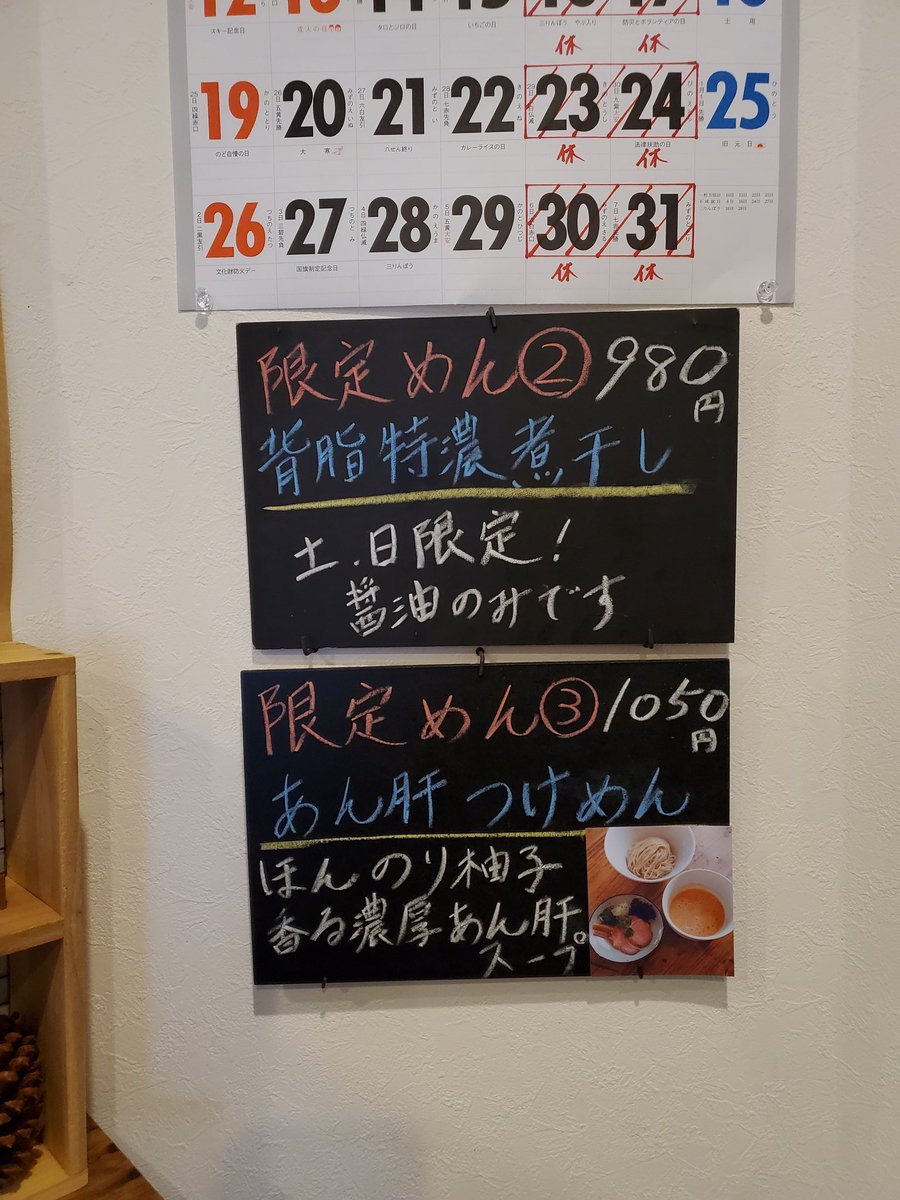 スキー記念日
成人の日
タロとジロの日
いちごの日
三りんぼう やぶ入り
防災とボランティアの日
土用
休 休
19 20 21 22 23 24 25
のど自慢の日
大寒
八せん終り
カレーライスの日
法律扶助の日
旧元日
休 休
26 27 28 29 30 31
文化財防火デー
国旗制定記念日
三りんぼう
休 休
限定めん② 980円
背脂特濃煮干し
土.日限定!
醤油のみです
限定めん③ 1050円
あん肝 つけめん
ほんのり柚子
香る濃厚あん肝
スープ